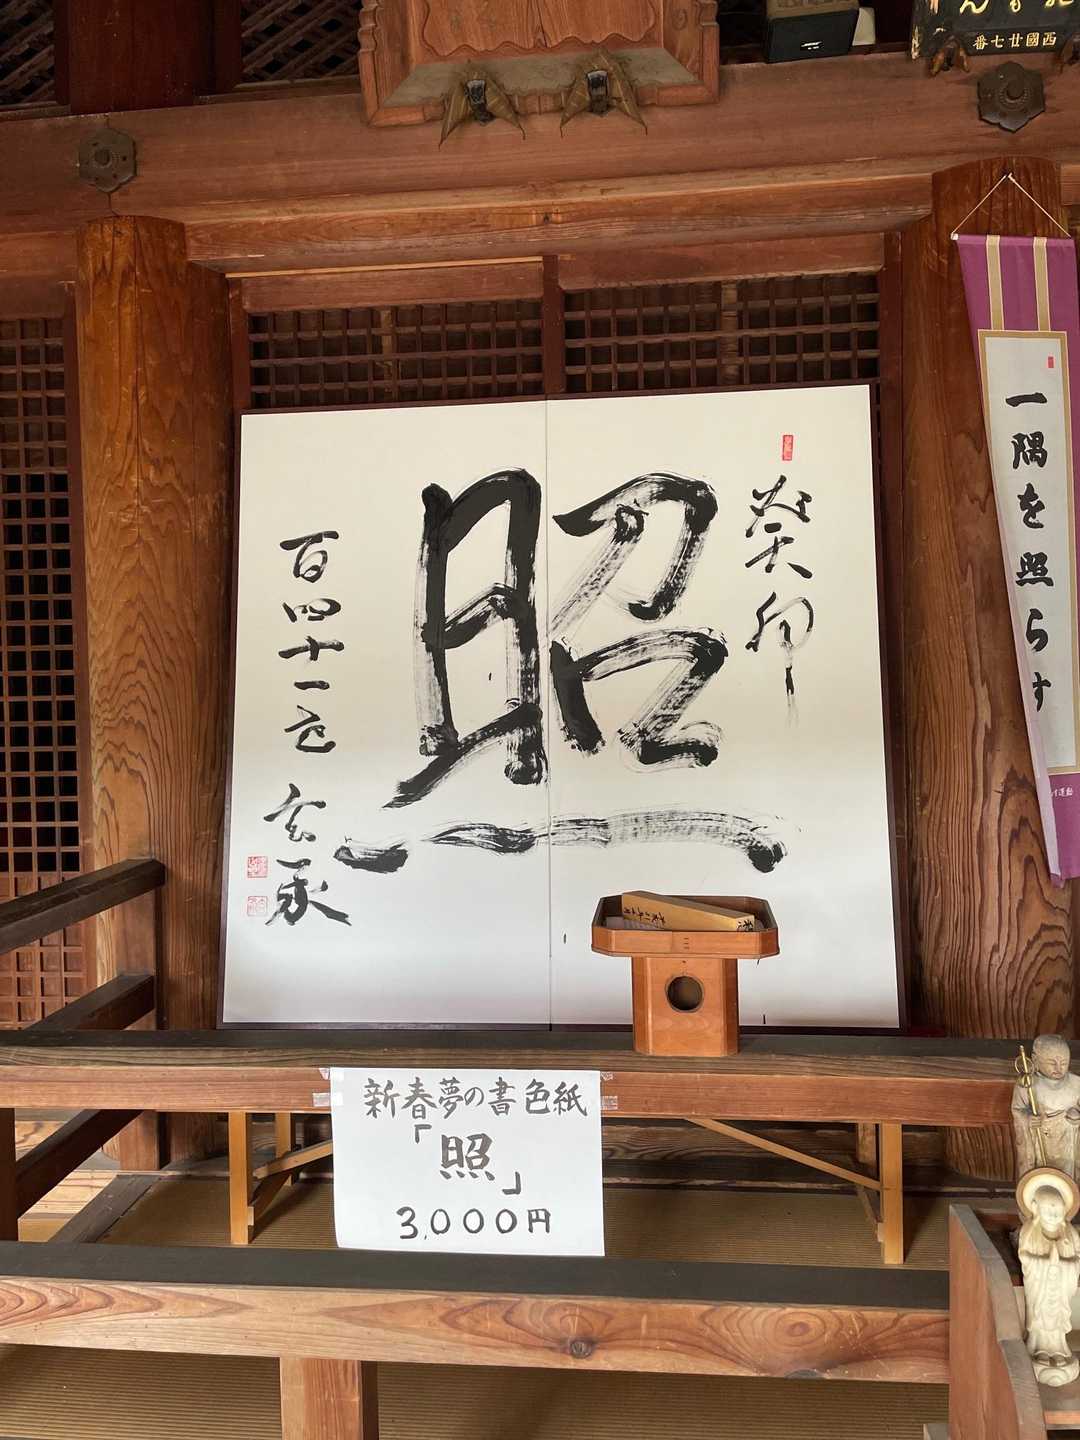 西國廿七番
一隅を照らす
癸卯
照
百四十一世
玄承
新春夢の書色紙
「照」
3,000円